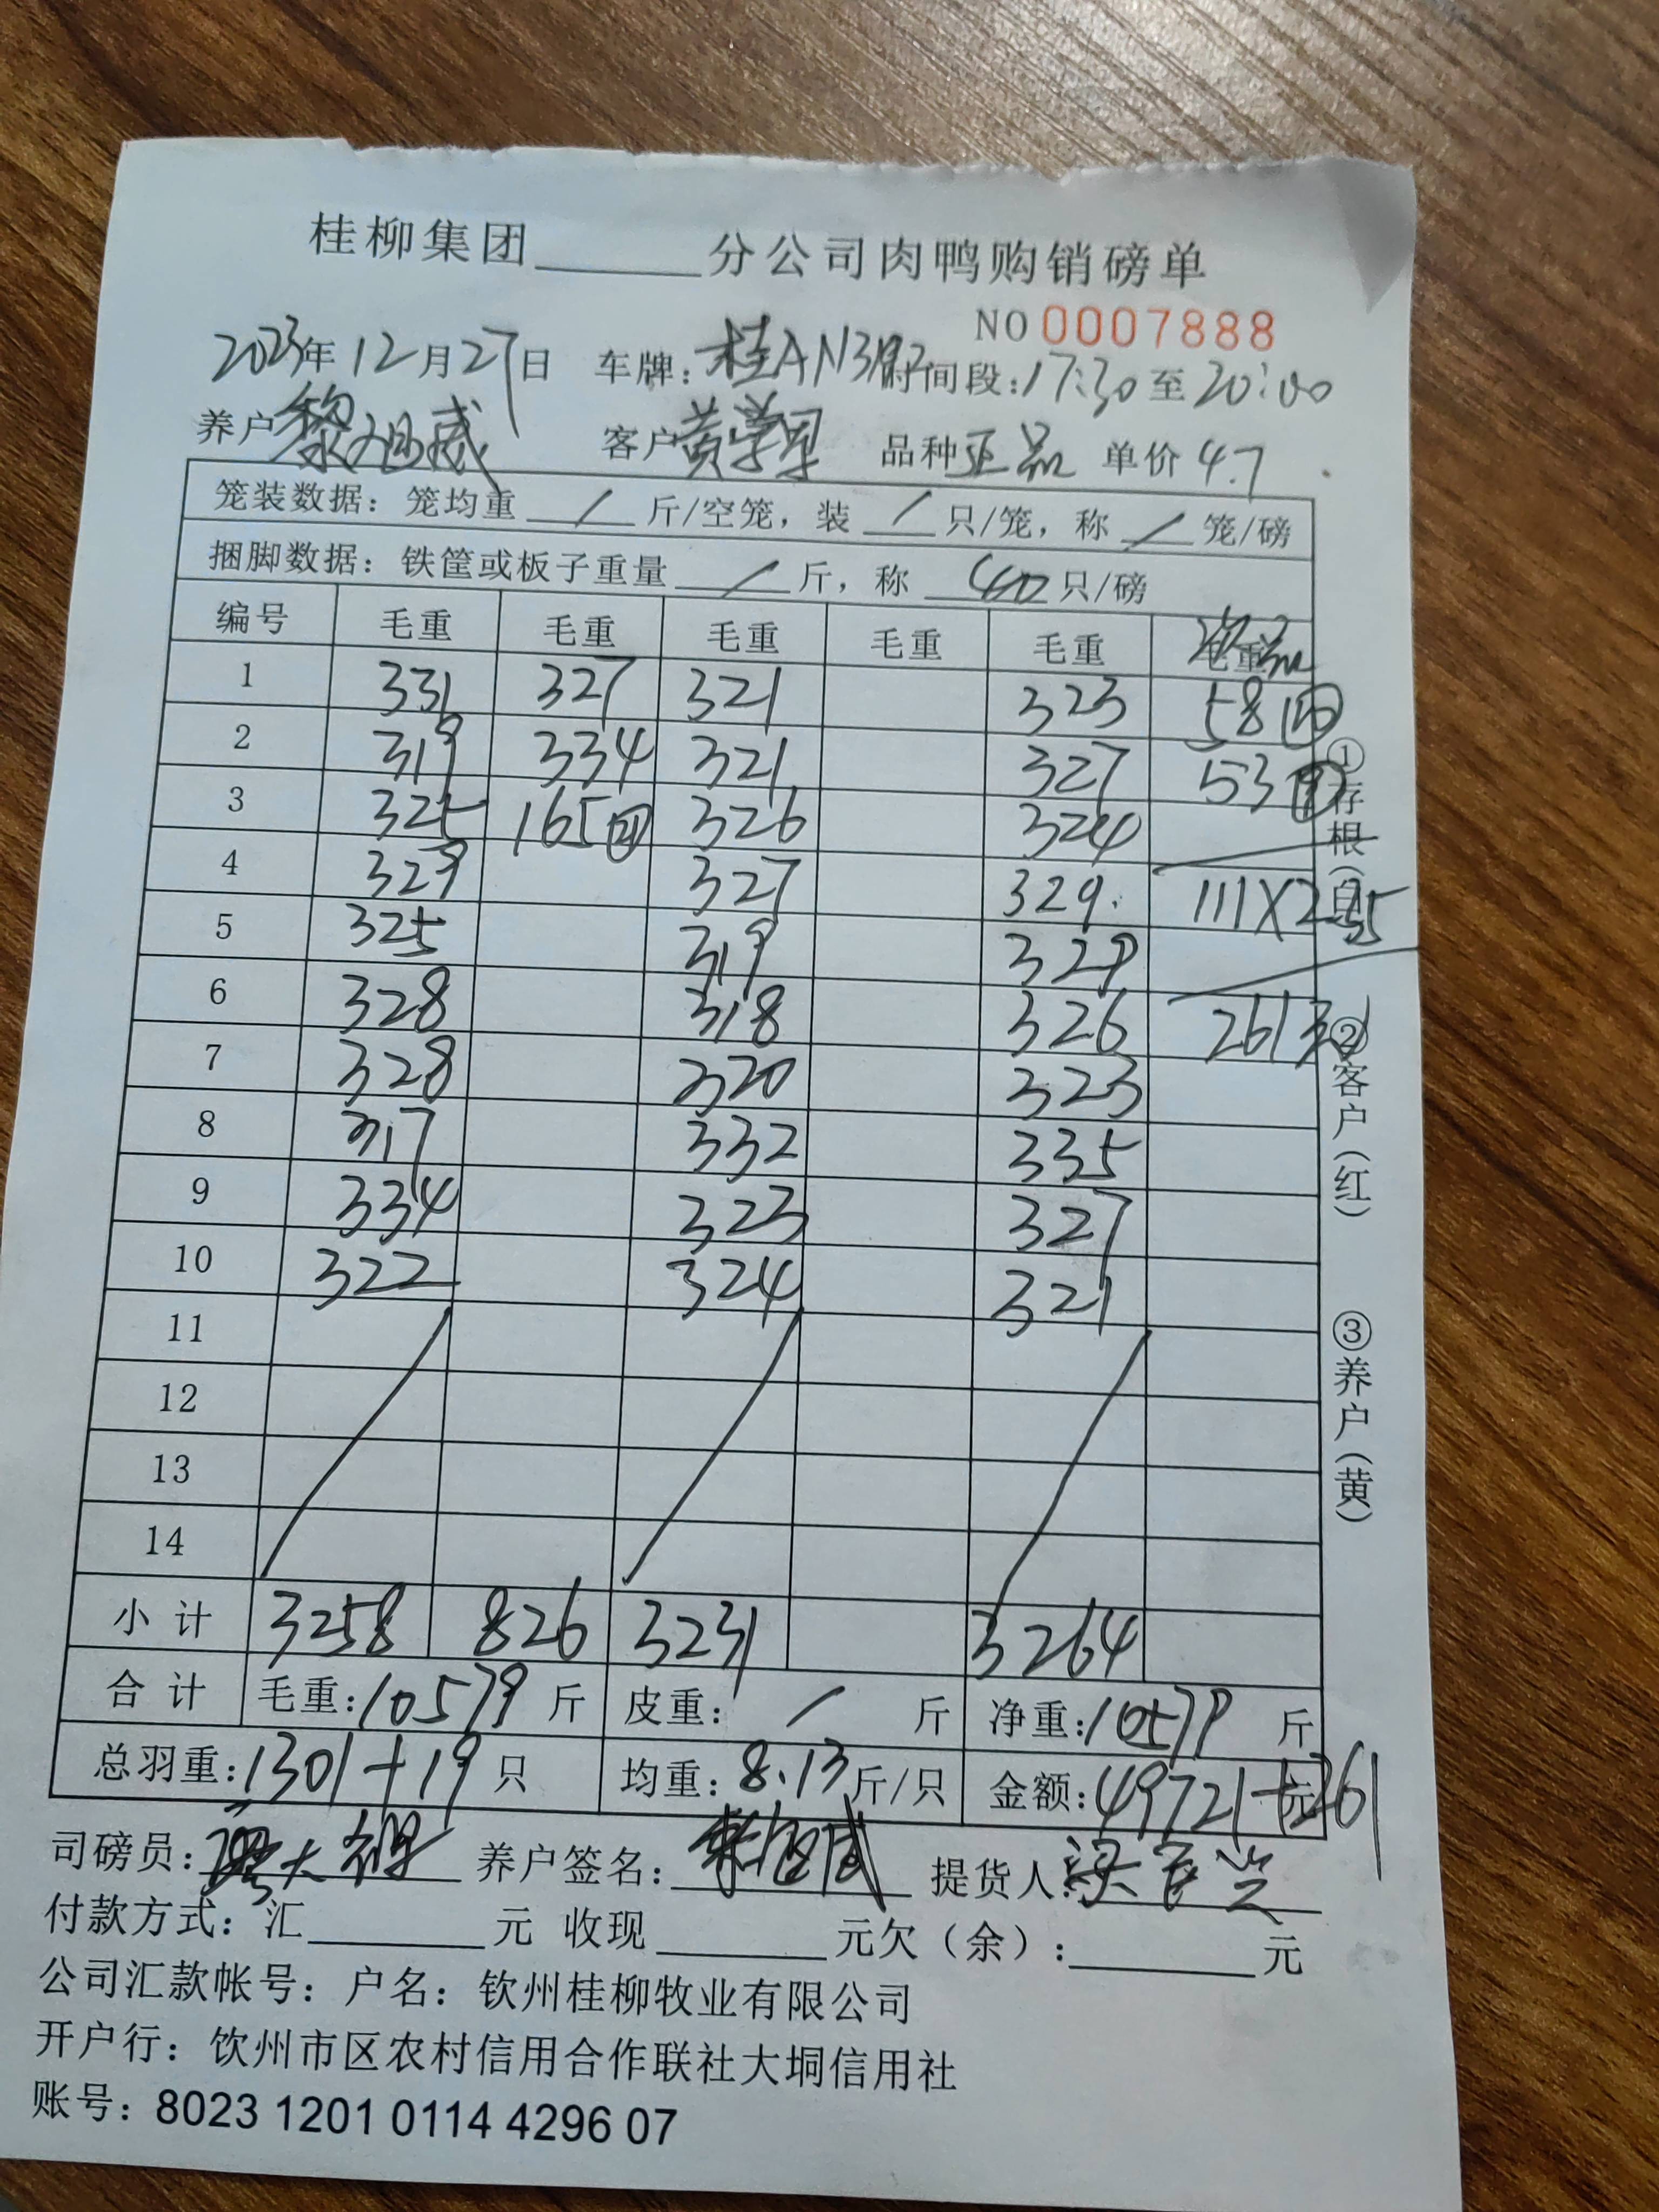 桂柳集团______分公司肉鸭购销磅单
NO 0007888
2023年12月27日 车牌:桂AN3 时间段:17:30至20:00
养户 黎旭威 客户 黄学军 品种 正品 单价 4.7
笼装数据：笼均重 / 斤/空笼，装 / 只/笼，称 / 笼/磅
捆脚数据：铁筐或板子重量 / 斤，称 40 只/磅
编号 毛重 毛重 毛重 毛重 毛重 毛重
1 331 327 321 323 58⑩
2 319 334 321 327 53⑨
3 325 165㉑ 326 324
4 329 327 329. 111X2.35
5 325 319 329
6 328 318 326 261元
7 328 320 323
8 317 332 335
9 334 323 327
10 322 324 321
11
12
13
14
小计 3258 826 3231 3264
合计 毛重:10579斤 皮重: / 斤 净重:10579斤
总羽重:1301+19只 均重:8.13斤/只 金额:49721+261元
司磅员: 养户签名: 提货人:
付款方式：汇______元 收现______元欠（余）:______元
公司汇款帐号：户名：钦州桂柳牧业有限公司
开户行：饮州市区农村信用合作联社大垌信用社
账号：8023 1201 0114 4296 07
①存根（白） ②客户（红） ③养户（黄）